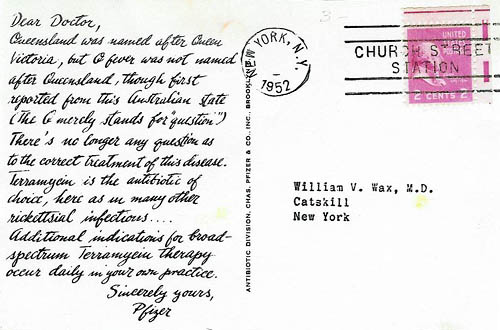 Dear Doctor,
Queensland was named after Queen
Victoria, but Q fever was not named
after Queensland, though first
reported from this Australian state
(the Q merely stands for "question")
There's no longer any question as
to the correct treatment of this disease.
Terramycin is the antibiotic of
choice, here as in many other
rickettsial infections....
Additional indications for broad-
spectrum Terramycin therapy
occur daily in your own practice.
Sincerely yours,
Pfizer
ANTIBIOTIC DIVISION, CHAS. PFIZER & CO., INC., BROOKLYN
NEW YORK, N.Y.
1952
CHURCH STREET
STATION
UNITED
2 CENTS 2
3
William V. Wax, M.D.
Catskill
New York